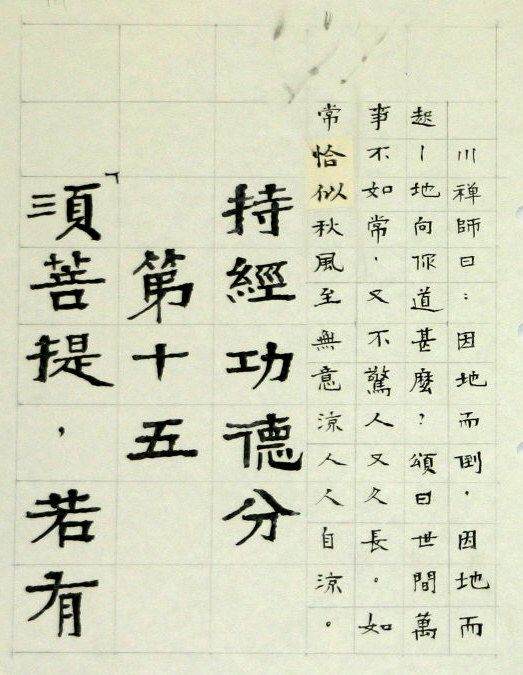 川禪師曰：因地而倒，因地而
起丨地向你道甚麼？頌曰世間萬
事不如常，又不驚人又久長。如
常恰似秋風至無意涼人人自涼。
持經功德分
第十五
「須菩提，若有